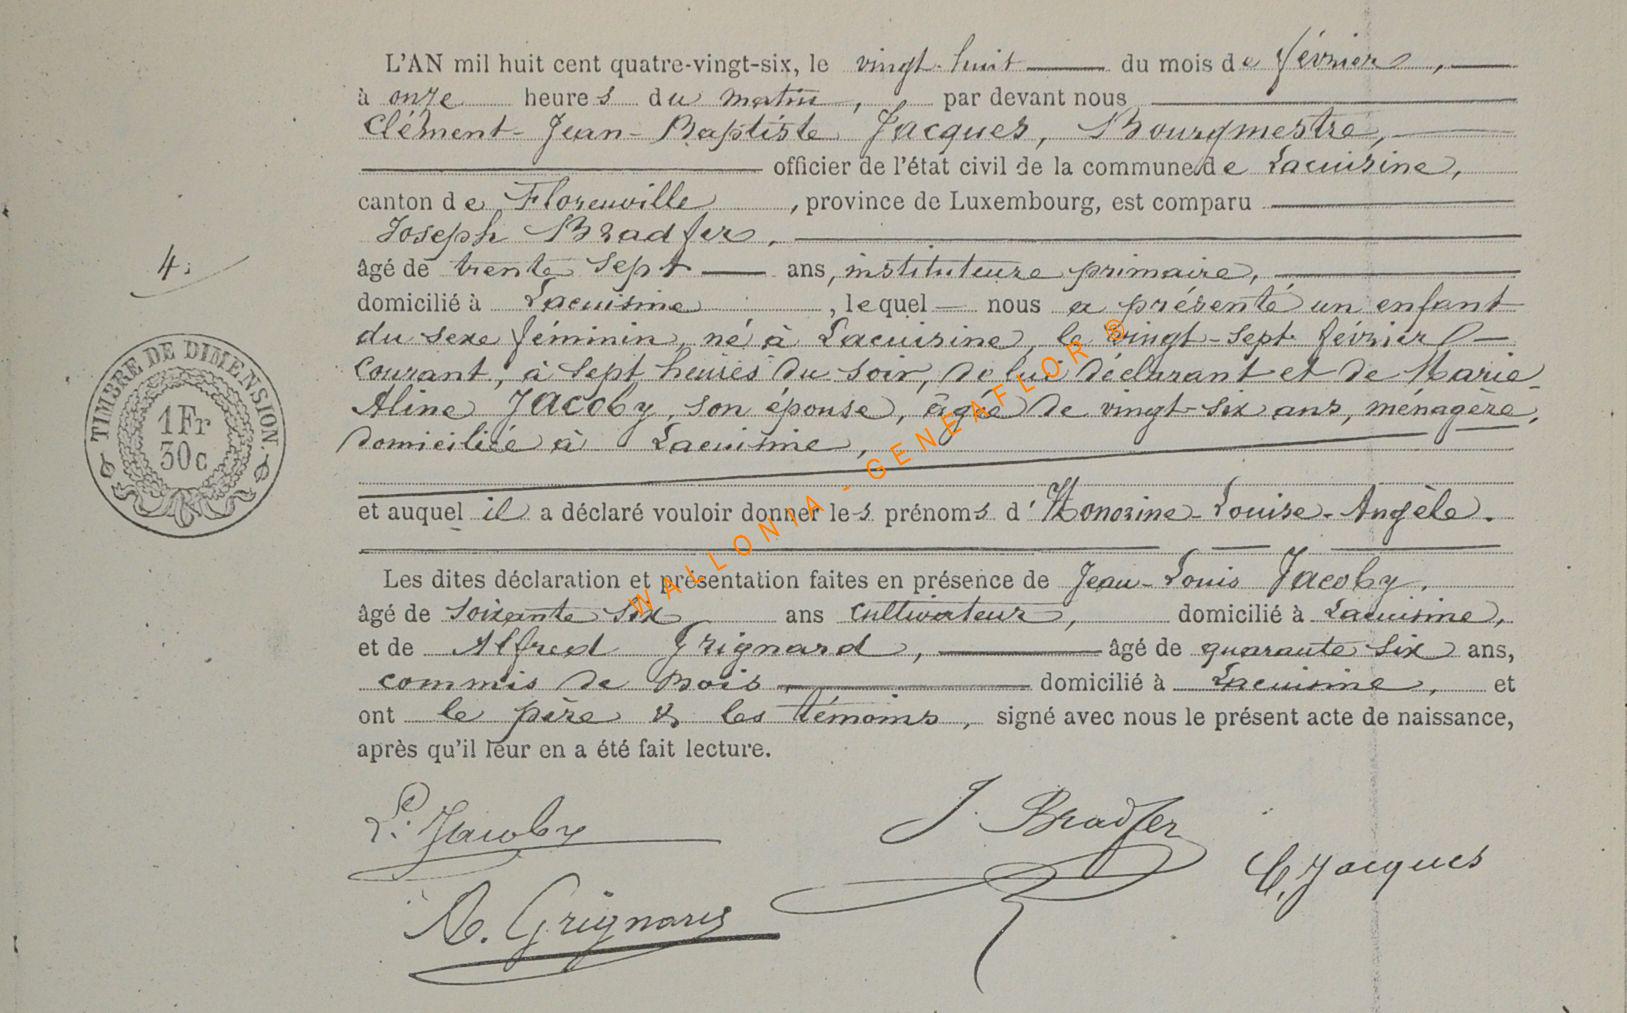 L'AN mil huit cent quatre-vingt-six, le vingt-huit du mois de février,
à onze heures du matin, par devant nous
Clément-Jean-Baptiste Jacques, Bourgmestre,
officier de l'état civil de la commune de Lacuisine,
canton de Florenville, province de Luxembourg, est comparu
Joseph Bradfer,
âgé de trente sept ans, instituteur primaire,
domicilié à Lacuisine, lequel nous a présenté un enfant
du sexe féminin, né à Lacuisine, le vingt-sept février
courant, à sept heures du soir, de lui déclarant et de Marie-
Aline Jacoby, son épouse, âgée de vingt-six ans, ménagère,
domiciliée à Lacuisine,
et auquel il a déclaré vouloir donner les prénoms d'Honorine-Louise-Angèle.
Les dites déclaration et présentation faites en présence de Jean-Louis Jacoby,
âgé de soixante six ans cultivateur, domicilié à Lacuisine,
et de Alfred Grignard, âgé de quarante six ans,
commis de Bois domicilié à Lacuisine, et
ont le père & les témoins, signé avec nous le présent acte de naissance,
après qu'il leur en a été fait lecture.
4.
TIMBRE DE DIMENSION.
1 Fr
30 c
L. Jacoby
J. Bradfer
C. Jacques
A. Grignard
WALLONIA - GENEAFLOR ®